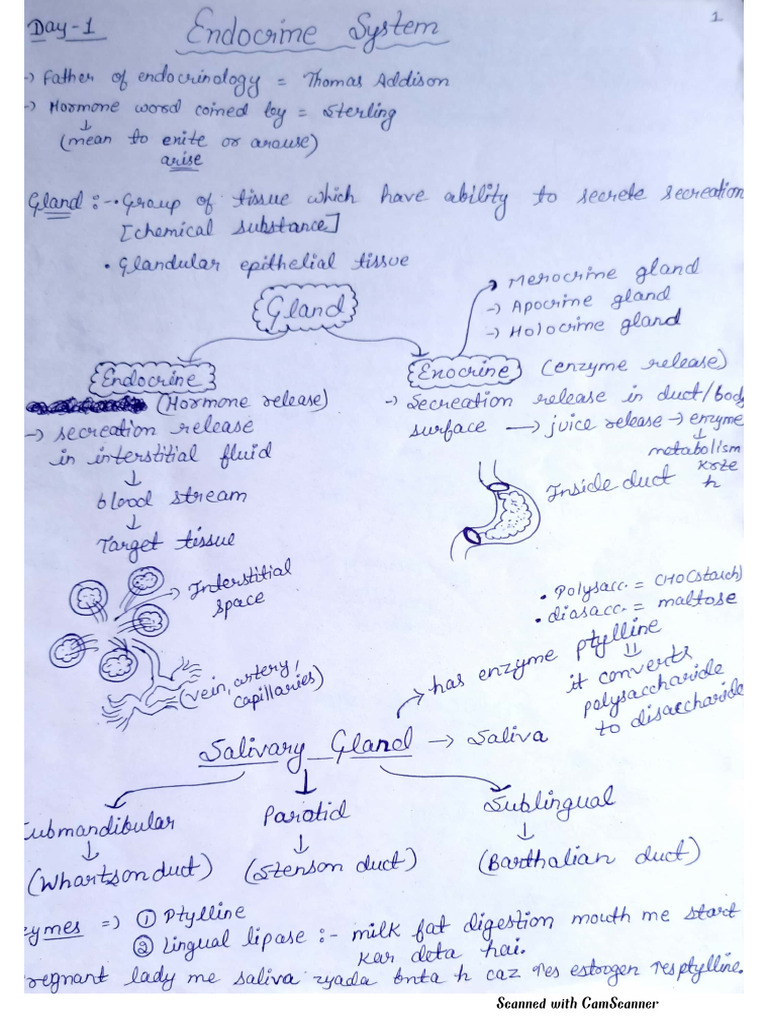 Day-1
Endocrine System
1.
-> Father of endocrinology = Thomas Addison
-> Hormone word coined by = Sterling
↓
(mean to exite or arause)
arise
Gland :-• Group of tissue which have ability to secrete secreation
[chemical substance]
• Glandular epithelial tissue
Gland
Merocrine gland
-> Apocrine gland
-> Holocrine gland
Endocrine
(Hormone release)
-> secreation release
in interstitial fluid
↓
blood stream
↓
Target tissue
Exocrine (enzyme release)
-> Secreation release in duct/body
surface -> juice release -> enzyme
↓
metabolism
krte
h
Inside duct
Interstitial
space
(vein, artery,
capillaries)
• Polysacc. = CHO(starch)
• diasacc. = maltose
has enzyme ptylline
it converts
polysaccharide
to disaccharide
Salivary Gland -> Saliva
Submandibular
↓
(Whartson duct)
Parotid
↓
(Stenson duct)
Sublingual
↓
(Barthalian duct)
zymes => ① Ptylline
② Lingual lipase :- milk fat digestion mouth me start
kar deta hai.
regnant lady me saliva zyada bnta h caz ↑es estrogen ↑es ptylline.
Scanned with CamScanner